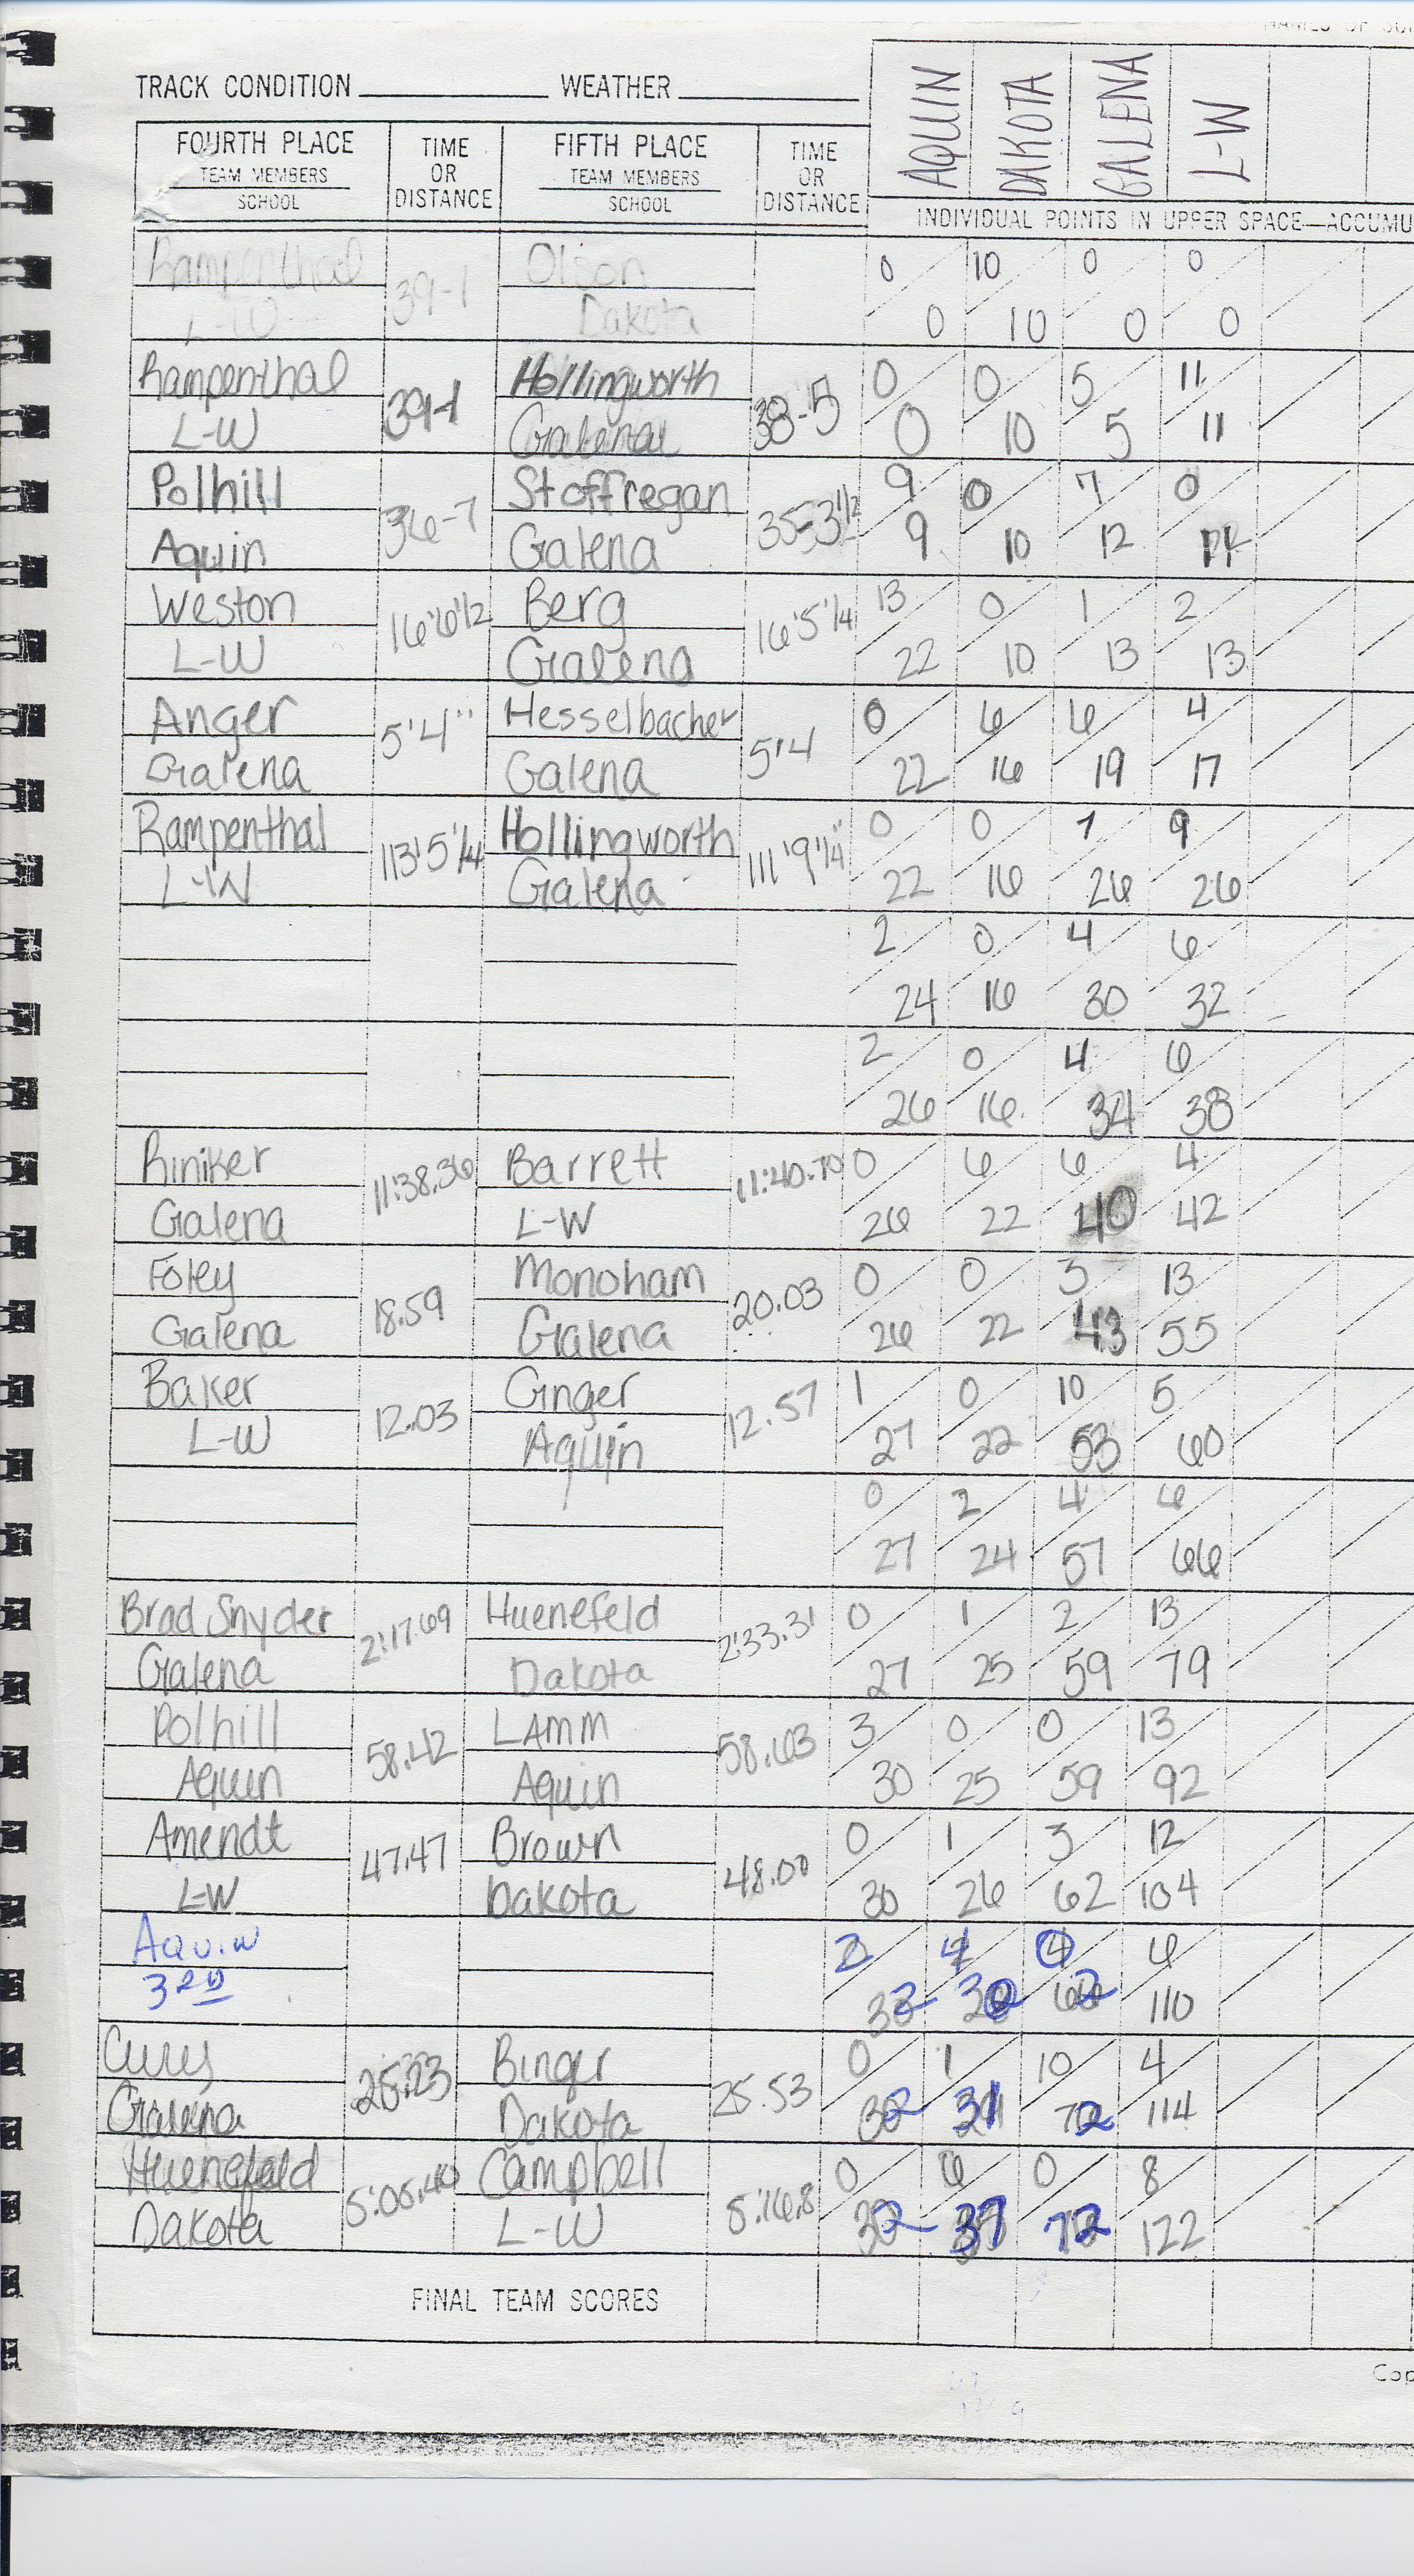 TRACK CONDITION WEATHER
AQUIN DAKOTA GALENA L-W
FOURTH PLACE TIME FIFTH PLACE TIME
TEAM MEMBERS OR TEAM MEMBERS OR
SCHOOL DISTANCE SCHOOL DISTANCE
INDIVIDUAL POINTS IN UPPER SPACE—ACCUMU
Rampenthal 39-1 Olson 0 10 0 0
L-W Dakota 0 10 0 0
Rampenthal 39-1 Hollingworth 38-5 0 0 5 11
L-W Galena 0 10 5 11
Polhill 36-7 Stoffregan 35-3 1/2 9 0 7 0
Aquin Galena 9 10 12 11
Weston 16'6 1/2 Berg 16'5 1/4 13 0 1 2
L-W Galena 22 10 13 13
Anger 5'4" Hesselbacher 5'4 0 6 6 4
Galena Galena 22 16 19 17
Rampenthal 113'5 1/4 Hollingworth 111'9 1/4" 0 0 7 9
L-W Galena 22 16 26 26
2 0 4 6
24 16 30 32
2 0 4 6
26 16 34 38
Riniker 11:38.36 Barrett 11:40.70 0 6 6 4
Galena L-W 26 22 40 42
Foley 18.59 Monoham 20.03 0 0 3 13
Galena Galena 26 22 43 55
Baker 12.03 Ginger 12.57 1 0 10 5
L-W Aquin 27 22 53 60
0 2 4 6
27 24 57 66
Brad Snyder 2:17.69 Huenefeld 2:33.31 0 1 2 13
Galena Dakota 27 25 59 79
Polhill 58.42 LAMM 58.63 3 0 0 13
Aquin Aquin 30 25 59 92
Amendt 47.47 Brown 48.00 0 1 3 12
L-W Dakota 30 26 62 104
Aquin 2 4 0 6
3RD 32 30 62 110
25.23 Binger 25.53 0 1 10 4
Galena Dakota 32 31 72 114
Huenefeld 5:05.40 Campbell 5:16.8 0 6 0 8
Dakota L-W 32 37 72 122
FINAL TEAM SCORES
Cop